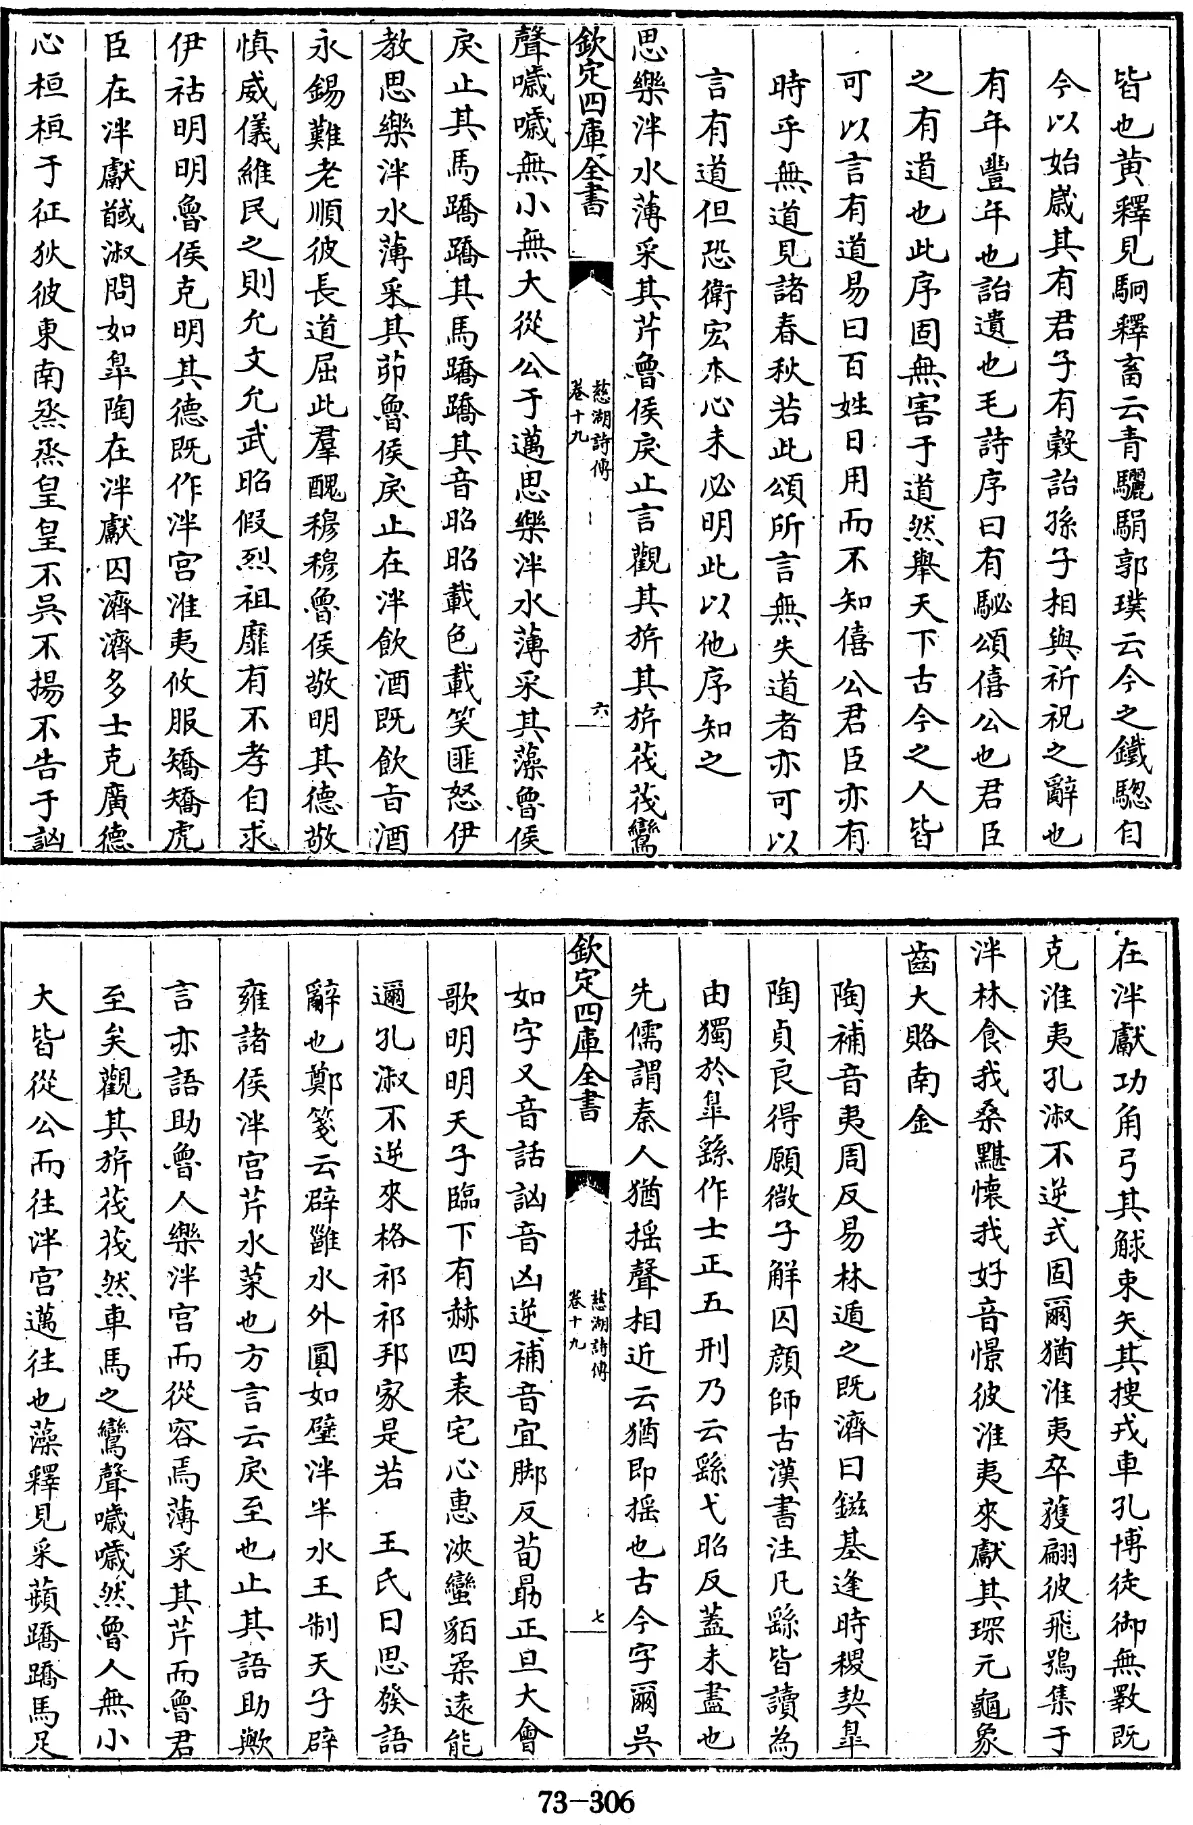 皆也黄釋見駉釋畜云青驪駽郭璞云今之鐵驄自
今以始歲其有君子有穀詒孫子相與祈祝之辭也
有年豐年也詒遺也毛詩序曰有駜頌僖公也君臣
之有道也此序固無害于道然舉天下古今之人皆
可以言有道易曰百姓日用而不知僖公君臣亦有
時乎無道見諸春秋若此頌所言無失道者亦可以
言有道但恐衛宏本心未必明此以他序知之
思樂泮水薄采其芹魯侯戾止言觀其旂其旂茷茷鸞
欽定四庫全書
慈湖詩傳
卷十九
六
聲噦噦無小無大從公于邁思樂泮水薄采其藻魯侯
戾止其馬蹻蹻其馬蹻蹻其音昭昭載色載笑匪怒伊
教思樂泮水薄采其茆魯侯戾止在泮飲酒既飲旨酒
永錫難老順彼長道屈此羣醜穆穆魯侯敬明其德敬
慎威儀維民之則允文允武昭假烈祖靡有不孝自求
伊祜明明魯侯克明其德既作泮宫淮夷攸服矯矯虎
臣在泮獻馘淑問如臯陶在泮獻囚濟濟多士克廣德
心桓桓于征狄彼東南烝烝皇皇不吳不揚不告于訩
在泮獻功角弓其觩束矢其搜戎車孔博徒御無斁既
克淮夷孔淑不逆式固爾猶淮夷卒獲翩彼飛鴞集于
泮林食我桑黮懷我好音憬彼淮夷來獻其琛元龜象
齒大賂南金
陶補音夷周反易林遁之既濟曰鎡基逢時稷契臯
陶貞良得願微子解囚顔師古漢書注凡繇皆讀為
由獨於臯繇作士正五刑乃云繇弋昭反蓋未盡也
先儒謂秦人猶摇聲相近云猶即摇也古今字爾吳
欽定四庫全書
慈湖詩傳
卷十九
七
如字又音話訩音凶逆補音宜脚反荀勗正旦大會
歌明明天子臨下有赫四表宅心惠浹蠻貊柔遠能
邇孔淑不逆來格祁祁邦家是若 王氏曰思發語
辭也鄭箋云辟雝水外圓如璧泮半水王制天子辟
雍諸侯泮宫芹水菜也方言云戾至也止其語助歟
言亦語助魯人樂泮宫而從容焉薄采其芹而魯君
至矣觀其旂茷茷然車馬之鸞聲噦噦然魯人無小
大皆從公而往泮宫邁往也藻釋見采蘋蹻蹻馬足
73-306